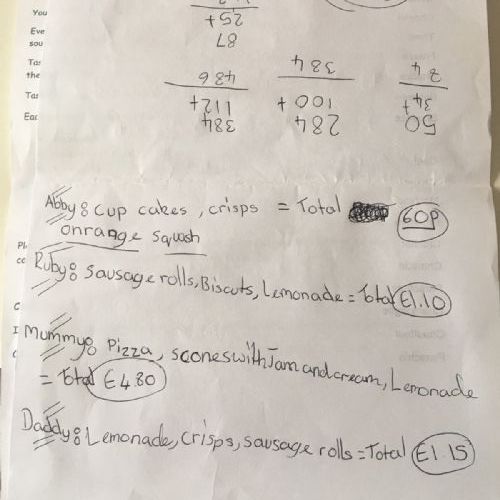 You
Eve
sou
Tas
the
Tas
Eac
87
25+
384
112+
284
100+
384
50
34+
84
Abby: Cup cakes, crisps = Total 60p
onrange squash
Ruby: Sausage rolls, Biscuts, Lemonade = Total £1.10
Mummy: Pizza, scones with Jam and cream, Lemonade
= Total £4.80
Daddy: Lemonade, crisps, sausage rolls = Total £1.15